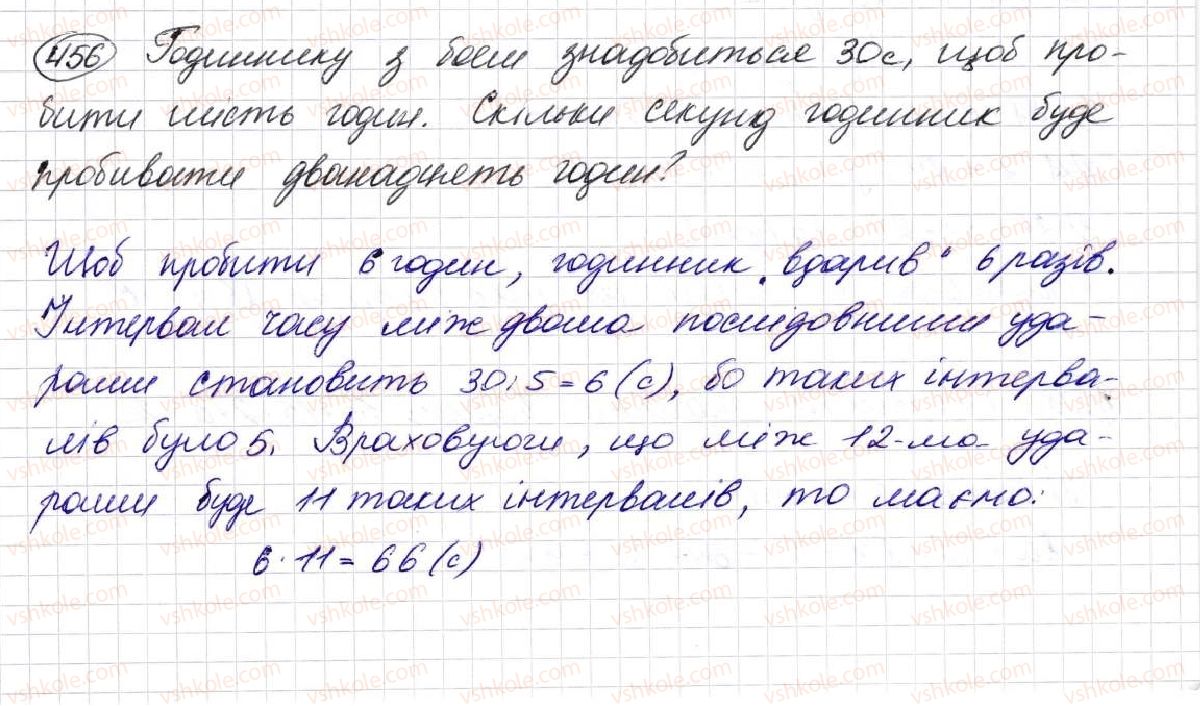 456 Годиннику з боєм знадобиться 30с, щоб про-
бити шість годин. Скільки секунд годинник буде
пробивати дванадцять годин?
Щоб пробити 6 годин, годинник „вдарив“ 6 разів.
Інтервал часу між двома послідовними уда-
рами становить 30:5=6(с), бо таких інтерва-
лів було 5. Враховуючи, що між 12-ма уда-
рами буде 11 таких інтервалів, то маємо:
6·11=66(с)